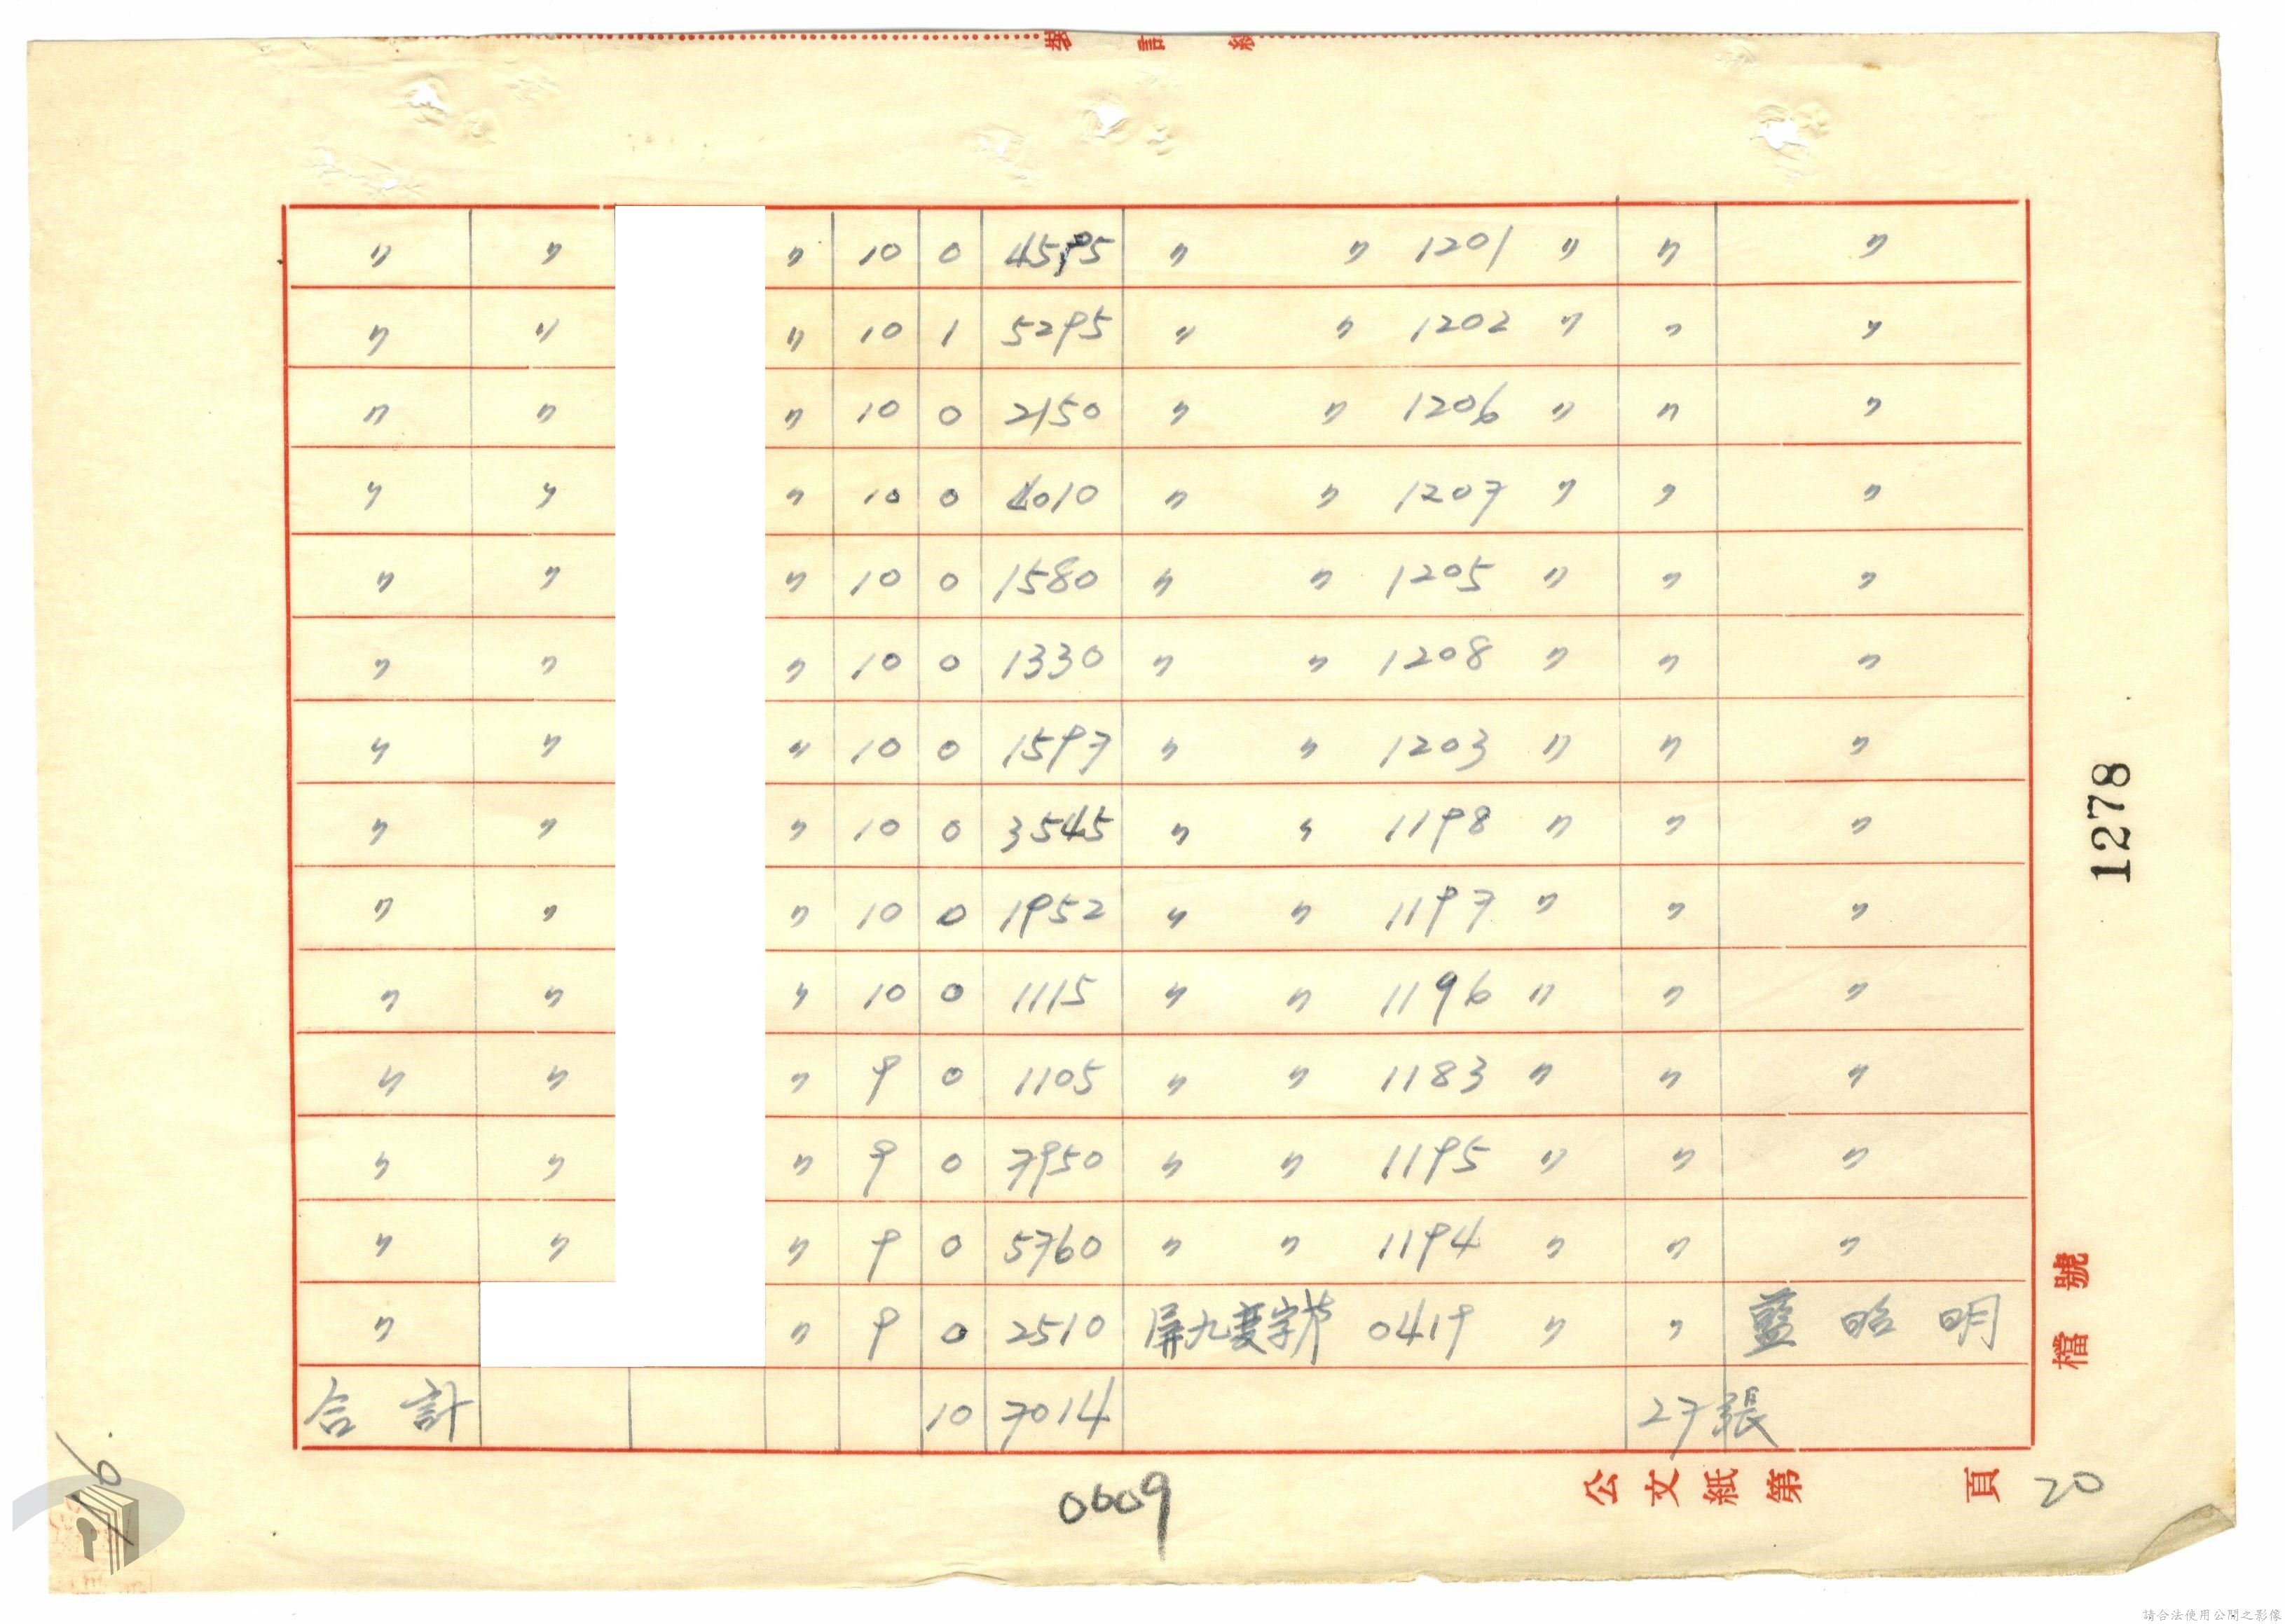 裝 訂 線
〃 〃 〃 10 0 4595 〃 〃 1201 〃 〃 〃
〃 〃 〃 10 1 5295 〃 〃 1202 〃 〃 〃
〃 〃 〃 10 0 2150 〃 〃 1206 〃 〃 〃
〃 〃 〃 10 0 4010 〃 〃 1207 〃 〃 〃
〃 〃 〃 10 0 1580 〃 〃 1205 〃 〃 〃
〃 〃 〃 10 0 1330 〃 〃 1208 〃 〃 〃
〃 〃 〃 10 0 1597 〃 〃 1203 〃 〃 〃
〃 〃 〃 10 0 3545 〃 〃 1198 〃 〃 〃
〃 〃 〃 10 0 1952 〃 〃 1197 〃 〃 〃
〃 〃 〃 10 0 1115 〃 〃 1196 〃 〃 〃
〃 〃 〃 9 0 1105 〃 〃 1183 〃 〃 〃
〃 〃 〃 9 0 7950 〃 〃 1195 〃 〃 〃
〃 〃 〃 9 0 5760 〃 〃 1194 〃 〃 〃
〃 〃 9 0 2510 屏九 字 0419 〃 〃 藍昭明
合計 10 7014 27張
1278
檔號
公文紙第 頁 20
0609
請合法使用公開之影像